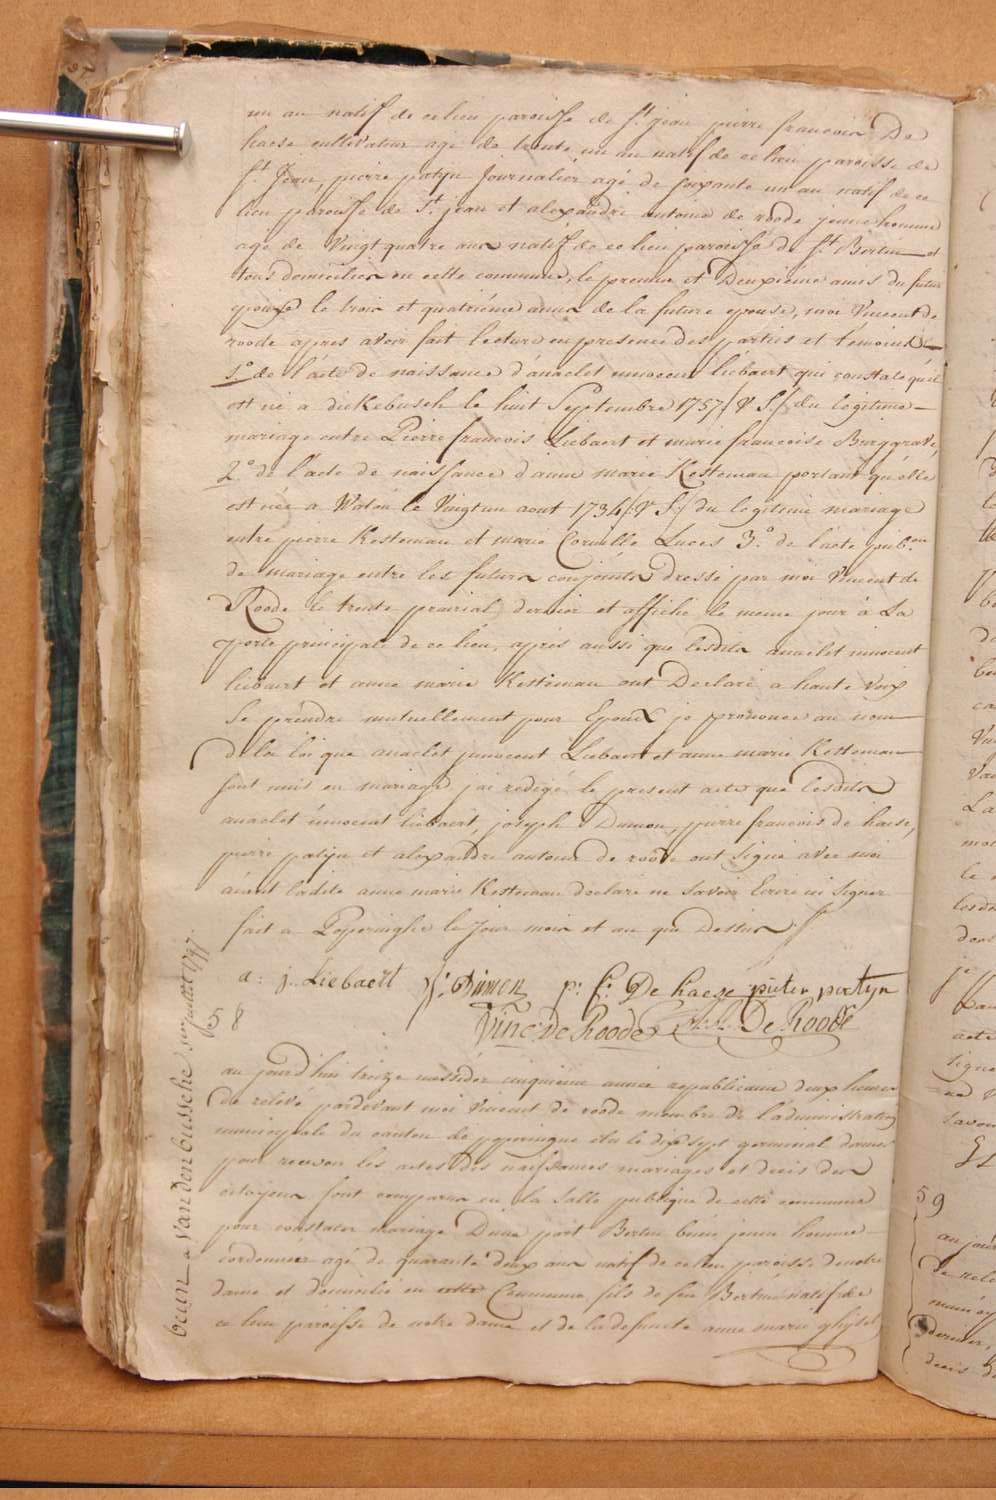 un an natif de ce lieu paroisse de St jean pierre francois De
haese cultivateur agé de trente un an natif de ce lieu paroisse de
St Jean, pierre patijn journalier agé de soixante un an natif de ce
lieu paroisse de St jean et alexandre antoine de roode jeune homme
agé de vingt quatre ans natif de ce lieu paroisse de St Bertin et
tous domicilies en cette commune, le premier et Deuxieme amis du futur
epoux le trois et quatriéme amis de la future epouse, moi Vincent de
roode apres avoir fait lecture en presence des parties et témoins
1.° de l'acte de naissance d'anaclet innocent liebaert qui constate qu'il
est né a dickebusch le huit Septembre 1757 /: V S :/ du legitime
mariage entre Pierre francois Liebaert et marie francoise Burggrave,
2.° de l'acte de naissance d'anne marie Kesteman portant qu'elle
est née a Watou le Vingt un aout 1734 /: V S :/ du legitime mariage
entre pierre Kesteman et marie Cornille Luces 3.° de l'acte pub.on
de mariage entre les futurs conjoints dressé par moi Vincent de
Roode le trente prairial dernier et affiché le meme jour à La
porte principale de ce lieu, aprés aussi que lesdits anaclet innocent
liebaert et anne marie Kesteman ont Declaré a haute voix
Se prendre mutuellement pour Epoux je prononce au nom
de la loi que anaclet innocent Liebaert et anne marie Kesteman
sont unis en mariage j'ai redigé le present acte que lesdits
anaclet innocent liebaert, joseph Dumon, pierre francois de haese,
pierre patijn et alexandre antoine de roode ont Signé avec moi
aiant ladite anne marie Kesteman declaré ne savoir Ecrire ni Signer
fait a Poperinghe le Jour mois et an que Dessus
a: j. Liebaert J: Dumon p: f: De haese pieter patyn
Vinc: De Roode A: A: De Roode
58
beun a Vanden bussche 1797.
au jourd'hui treize messidor cinquieme année republicaine deux heures
de relevé pardevant moi Vincent de roode membre de l'administration
municipale du canton de poperingue élu le dix sept germinal dernier
pour recevoir les actes des naissances mariages et decés des
citoyens sont comparus en la Salle publique de cette commune
pour constater mariage D'une part Bertin beun jeune homme
cordonnier agé de quarante deux ans natif de ce lieu paroisse de notre
dame et domicilié en cette Commune fils de feu Bertin natif de
ce lieu paroisse de notre dame et de la defuncte anne marie ghijsel
59